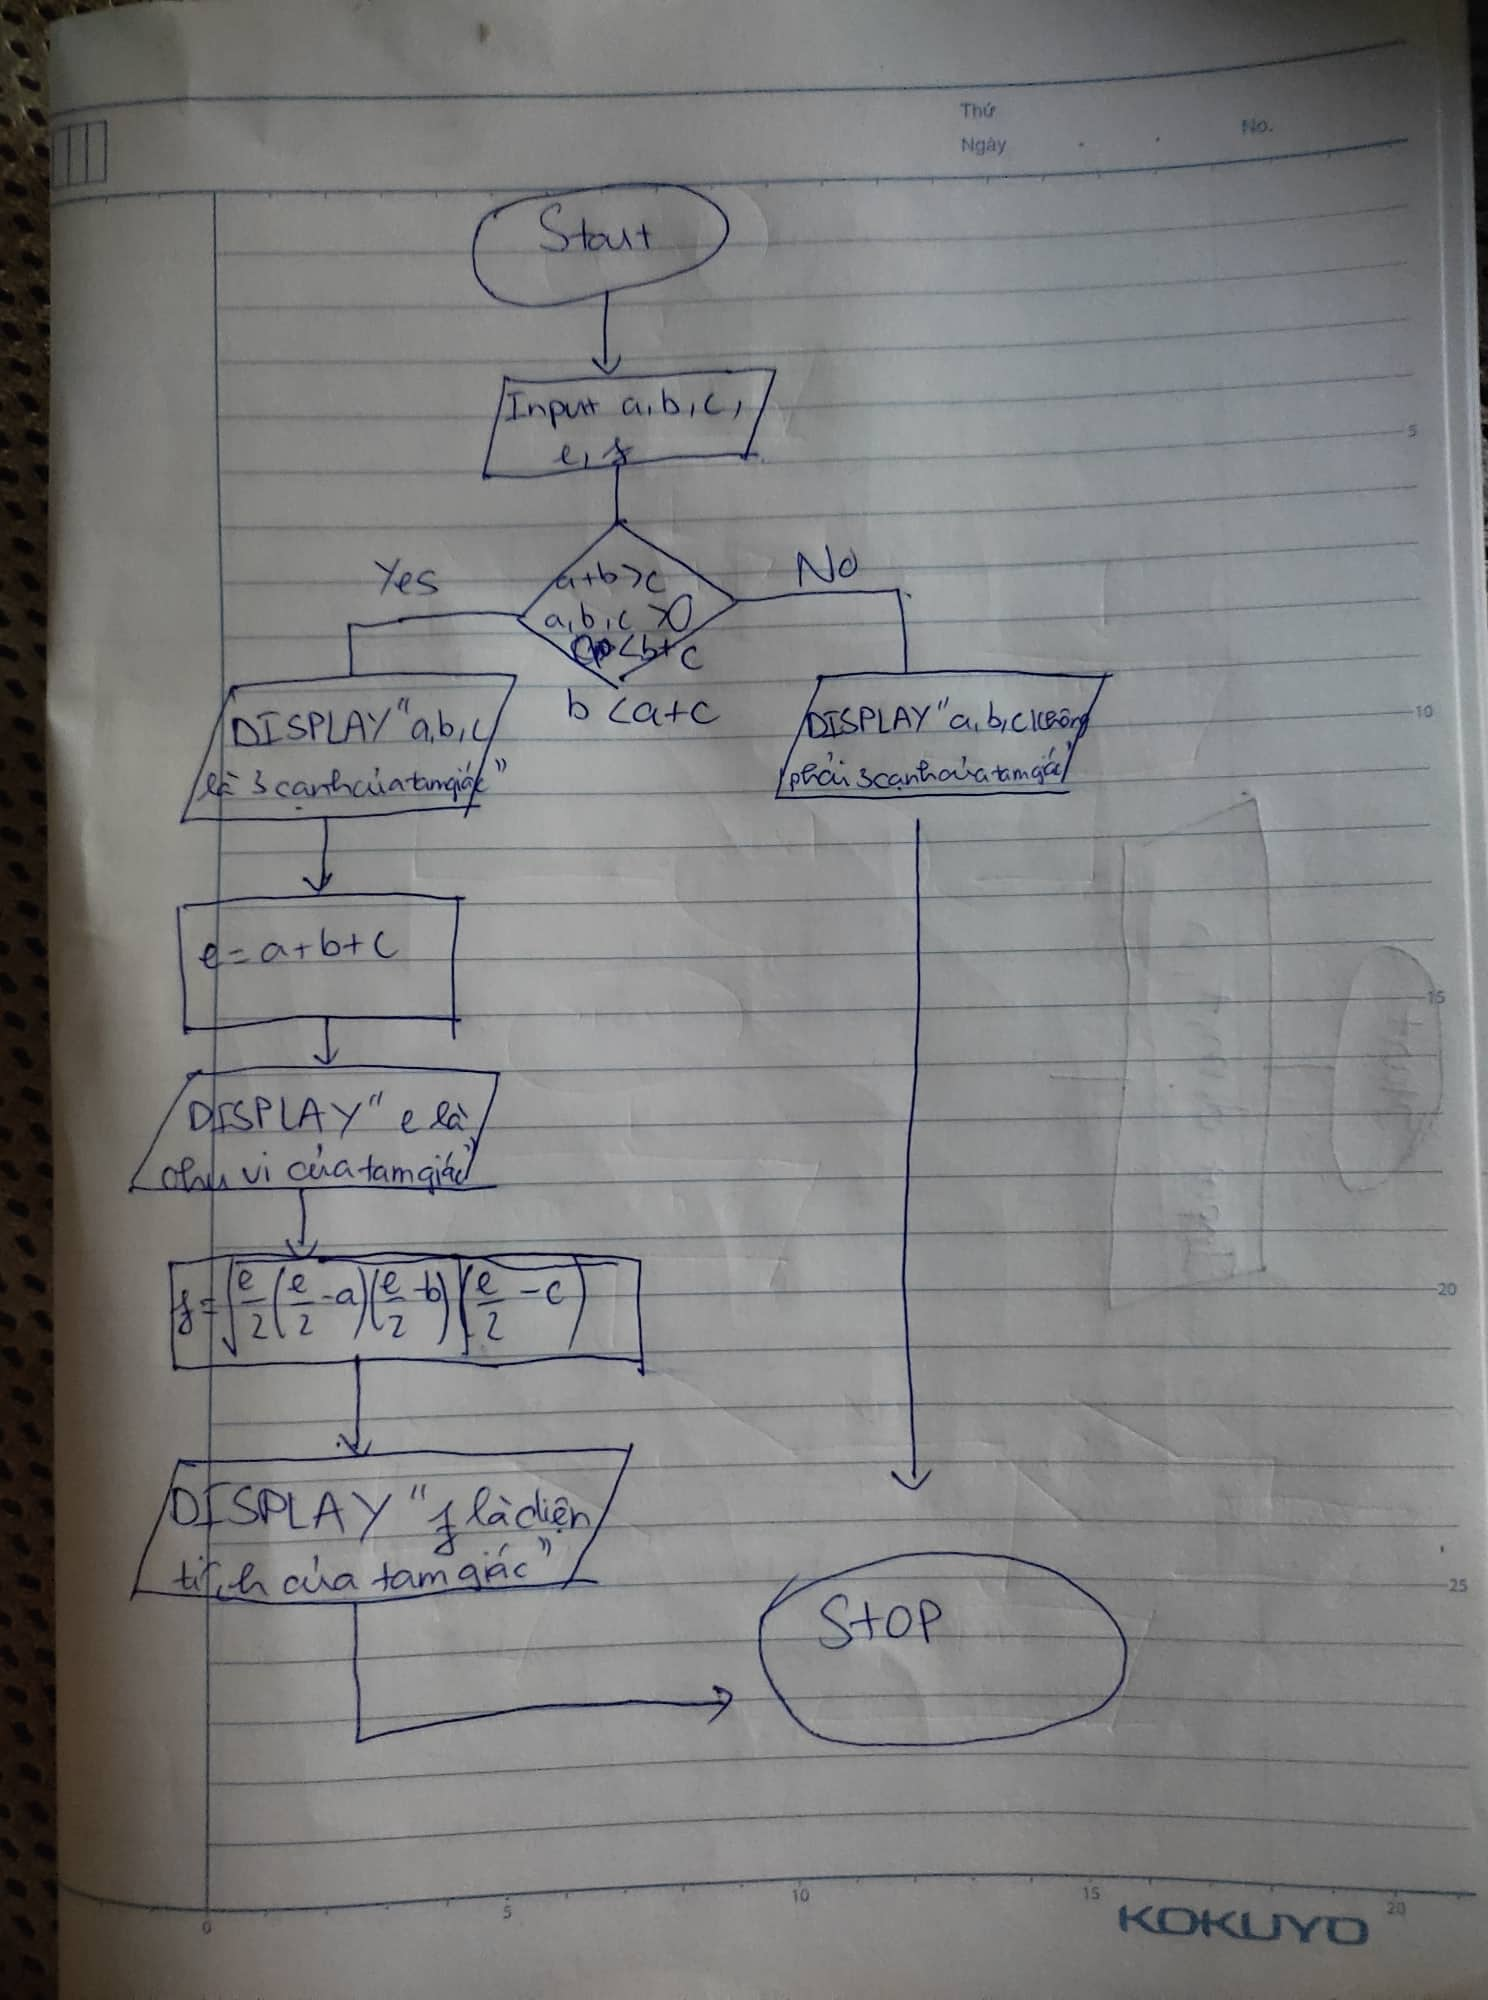 Thứ
Ngày
No.
Start
Input a, b, c,
e, f
Yes
No
a+b>c
a, b, c >0
a <b+c
b <a+c
DISPLAY "a, b, c
là 3 cạnh của tam giác"
DISPLAY "a, b, c không
phải 3 cạnh của tam giác"
e = a+b+c
DISPLAY "e là
chu vi của tam giác"
f = √e/2(e/2-a)(e/2-b)(e/2-c)
DISPLAY "f là diện
tích của tam giác"
STOP
5
10
15
20
25
0
5
10
15
20
KOKUYO